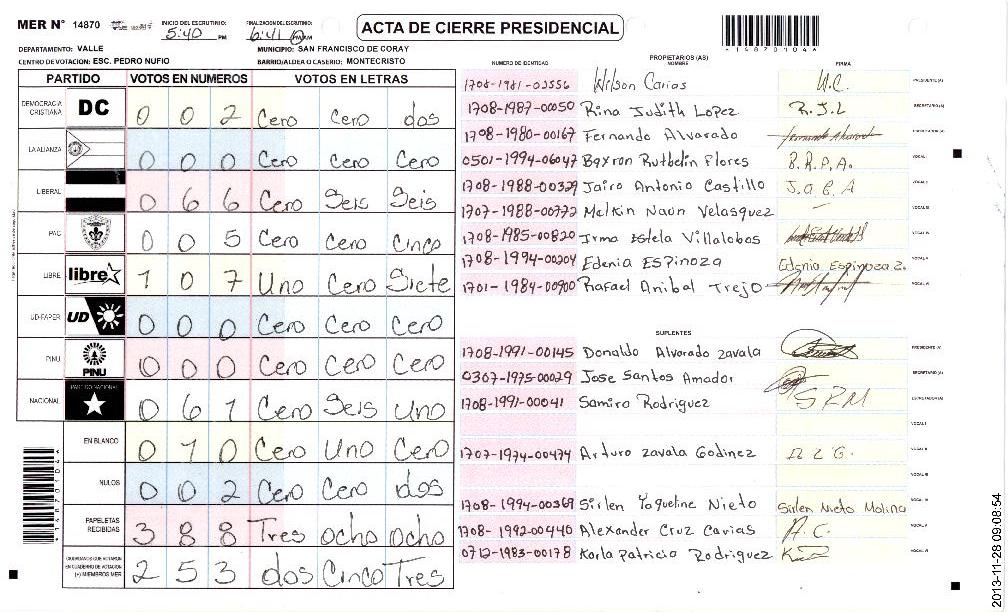 MER N° 14870 INICIO DEL ESCRUTINIO: 5:40 PM FINALIZACION DEL ESCRUTINIO: 6:41 PM
ACTA DE CIERRE PRESIDENCIAL
-14870104-
DEPARTAMENTO: VALLE MUNICIPIO: SAN FRANCISCO DE CORAY
CENTRO DE VOTACION: ESC. PEDRO NUFIO BARRIO/ALDEA O CASERIO: MONTECRISTO
PARTIDO VOTOS EN NUMEROS VOTOS EN LETRAS
DEMOCRACIA CRISTIANA DC 0 0 2 Cero Cero dos
LA ALIANZA 0 0 0 Cero Cero Cero
LIBERAL 0 6 6 Cero Seis Seis
PAC 0 0 5 Cero Cero Cinco
LIBRE libre 1 0 7 Uno Cero Siete
UD-FAPER UD 0 0 0 Cero Cero Cero
PINU PINU 0 0 0 Cero Cero Cero
NACIONAL PARTIDO NACIONAL 0 6 1 Cero Seis Uno
EN BLANCO 0 1 0 Cero Uno Cero
NULOS 0 0 2 Cero Cero dos
PAPELETAS RECIBIDAS 3 8 8 Tres ocho ocho
CIUDADANOS QUE VOTARON EN CUADERNO DE VOTACION (+) MIEMBROS MER 2 5 3 dos Cinco Tres
PROPIETARIOS (AS)
NUMERO DE IDENTIDAD NOMBRE FIRMA
1708-1981-03556 Wilson Carias W.C. PRESIDENTE(A)
1708-1987-00050 Rina Judith Lopez R.J.L SECRETARIO(A)
1708-1980-00167 Fernando Alvarado ESCRUTADOR(A)
0501-1994-06047 Bayron Rutbelin Flores B.R.P.A. VOCAL I
1708-1988-00329 Jairo Antonio Castillo J.a C.A VOCAL II
1707-1988-00772 Melkin Naun Velasquez VOCAL III
1708-1985-00820 Irma Estela Villalobos VOCAL IV
1708-1994-00204 Edenia ESPinoza Edenia Espinoza z. VOCAL V
1701-1984-00900 Rafael Anibal Trejo VOCAL VI
SUPLENTES
1708-1991-00145 Donaldo Alvarado zavala PRESIDENTE(A)
0307-1975-00029 Jose Santos Amador SECRETARIO(A)
1708-1991-00041 Samiro Rodriguez S R M ESCRUTADOR(A)
VOCAL I
1707-1974-00474 Arturo zavala Godinez A Z G. VOCAL II
VOCAL III
1708-1994-00369 Sirlen Yaqueline Nieto Sirlen Nieto Molina VOCAL IV
1708-1992-00440 Alexander Cruz Carias A.C. VOCAL V
0712-1983-00178 Karla Patricia Rodriguez VOCAL VI
2013-11-28 09:08:54
14870104